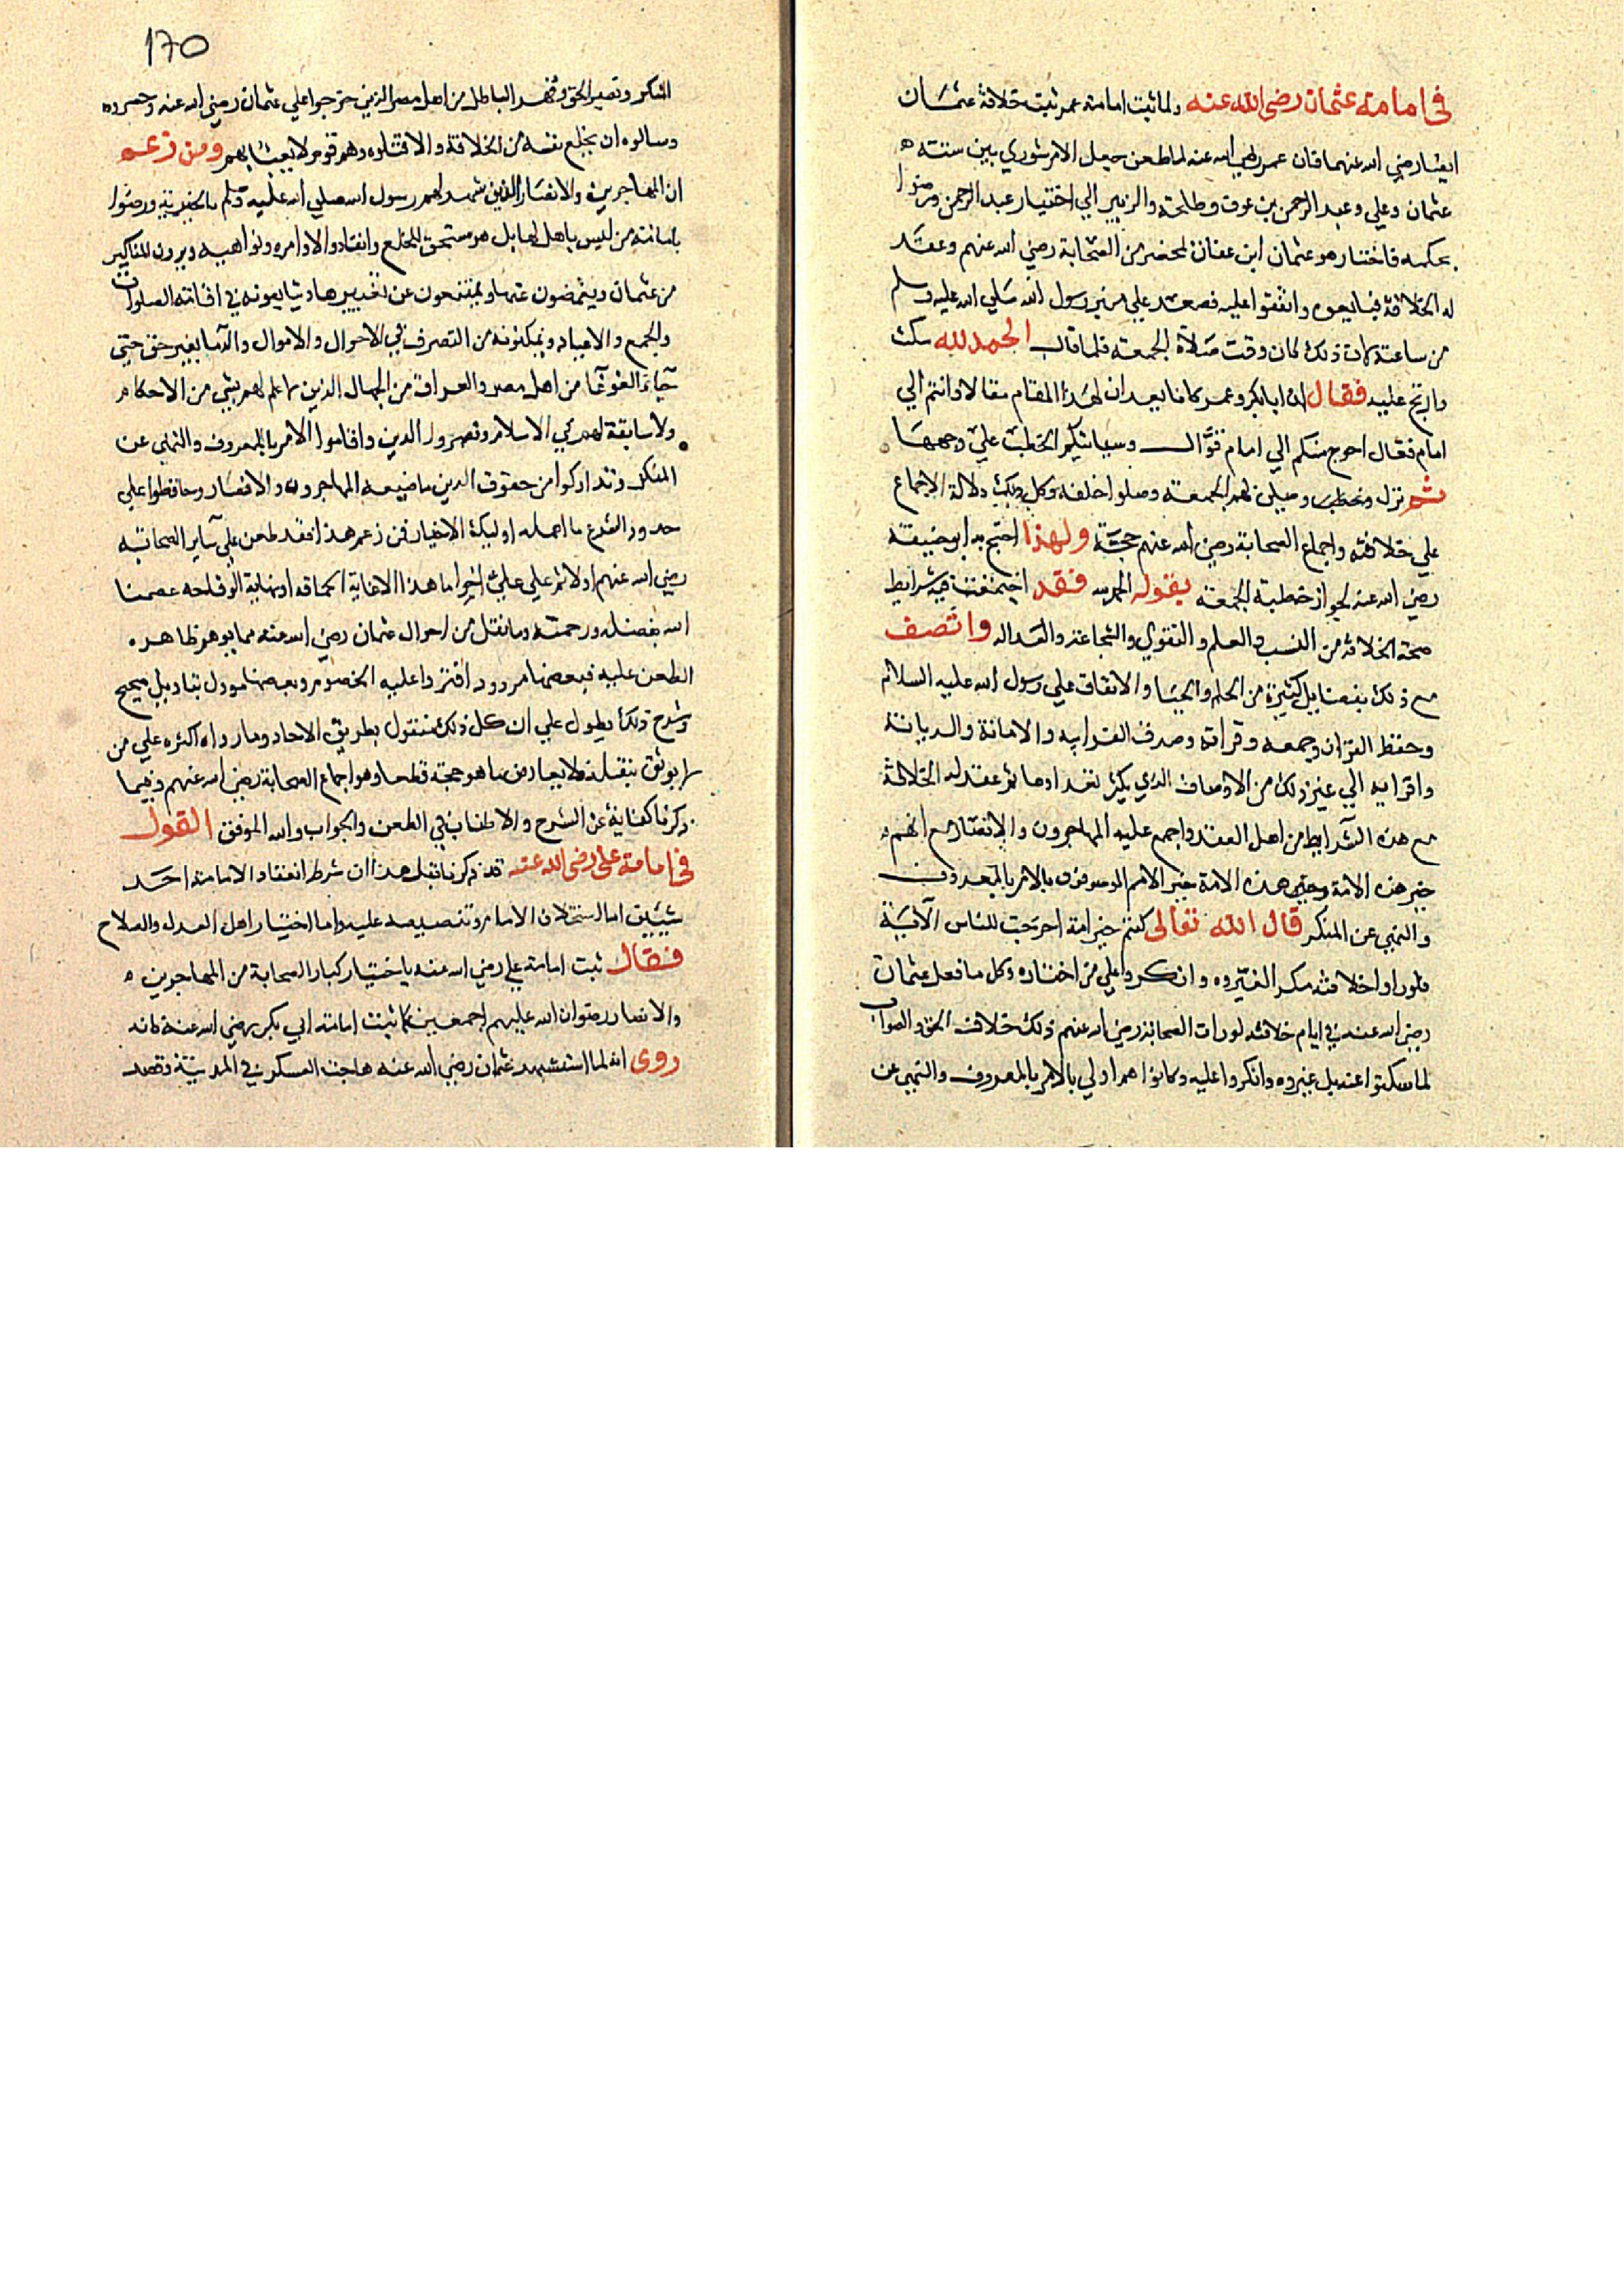 في امامة عثمان رضي الله عنه ولما ثبت امامة عمر ثبت خلافة عثمان
ايضا رضي الله عنهما فان عمر رضي الله عنه لما طعن جعل الامر شوري بين ستة
عثمان وعلي وعبد الرحمن بن عوف وطلحة والزبير الي اختيار عبد الرحمن ورضوا
بحكمه فاختار هو عثمان ابن عفان بمحضر من الصحابة رضي الله عنهم وعقد
له الخلافة فبايعوه واتفقوا عليه فصعد علي منبر رسول الله صلي الله عليه وسلم
من ساعته كان ذلك كان وقت صلاة الجمعة فلما قال الحمد لله سكت
وارتج عليه فقال ان ابا بكر وعمر كانا يعدان لهذا المقام مقالا وانتم الي
امام فعال احوج منكم الي امام قوال وسياتيكم الخطب علي وجهها
ثم نزل وصلي لهم الجمعة وصلوا خلفه وكل ذلك دلالة الاجماع
علي خلافته واجماع الصحابة رضي الله عنهم حجة ولهذا احتج به ابو حنيفة
رضي الله عنه لجواز خطبة الجمعة بقوله الحمد لله فقد اجتمعت فيه شرايط
صحة الخلافة من النسب والعلم والتقوي والشجاعة والعدالة واتصف
مع ذلك بفضايل كثيرة من الحلم والحيا والانفاق علي رسول الله عليه السلام
وحفظ القران وجمعه وقراته وصدق القرابه والامانة والديانة
واقرابه الي غير ذلك من الاوصاف الذي يكثر تعدادها ثم عقد له الخلافة
مع هذه الشرايط من اهل العقد واجمع عليه المهاجرون والانصار مع انهم
خير هذه الامة وخير هذه الامة خير الامم الموصوفون بالامر بالمعروف
والنهي عن المنكر قال الله تعالى كنتم خير امة اخرجت للناس الآية
فلو راوا خلافته منكرا لغيروه وانكروا علي من اختاره وكل ما فعل عثمان
رضي الله عنه في ايام خلافته لو رات الصحابة رضي الله عنهم ذلك خلاف الحق والصواب
لما سكتوا عنه بل غيروه وانكروا عليه وكانوا هم اولي بالامر بالمعروف والنهي عن
170
المنكر ونصر الحق وقهر الباطل من اهل مصر الذين خرجوا علي عثمان رضي الله عنه وحصروه
وسالوه ان يخلع نفسه من الخلافة والا قتلوه وهم قوم لا يعبا بهم ومن زعم
ان المهاجرين والانصار الذين شهد لهم رسول الله صلي الله عليه وسلم بالخيرية ورضوا
بامامة من ليس باهل لها بل هو مستحق للخلع وانقادوا لاوامره ونواهيه ويرون المناكير
من عثمان ويغمضون عنها ويمتنعون عن تغييرها ويتابعونه في اقامة الصلوات
والجمع والاعياد ويمكنونه من التصرف في الاحوال والاموال والدما بغير حق حتي
جاء الغوغا من اهل مصر والعراق من الجهال الذين ما علم لهم بشي من الاحكام
ولا سابقة لهم في الاسلام ونصروا الدين واقاموا الامر بالمعروف والنهي عن
المنكر وتداركوا من حقوق الدين ما ضيعه المهاجرون والانصار وحافظوا علي
حدود الشرع ما اهمله اوليك الاخيار فمن زعم هذا فقد طعن علي ساير الصحابة
رضي الله عنهم اولا ثم علي علي اخرا ما هذا الا غاية الحماقة او نهاية الوقاحة عصمنا
الله بفضله ورحمته وما نقل من احوال عثمان رضي الله عنه مما يوهم ظاهره
الطعن عليه فبعضها مردود افتروا عليه الخصوم وبعضها مودل بتاويل صحيح
وشرح ذلك يطول علي ان كل ذلك منقول بطريق الاحاد وما رواه اكثره علي من
لا يوثق بنقله فلا يعارض ما هو حجة قطعا وهو اجماع الصحابة رضي الله عنهم وفيما
ذكرنا كفاية عن الشرح والاطناب في الطعن والجواب والله الموفق القول
في امامة علي رضي الله عنه قد ذكرنا قبل هذا ان شرط انعقاد الامامة احد
شيئين اما استخلاف الامام وتنصيصه عليه واما اختيار اهل العدل والصلاح
فقال ثبت امامة علي رضي الله عنه باختيار كبار الصحابة من المهاجرين
والانصار رضوان الله عليهم اجمعين كما ثبت امامة ابي بكر رضي الله عنه فانه
روى انه لما استشهد عثمان رضي الله عنه هاجت العسكر في المدينة وقصد